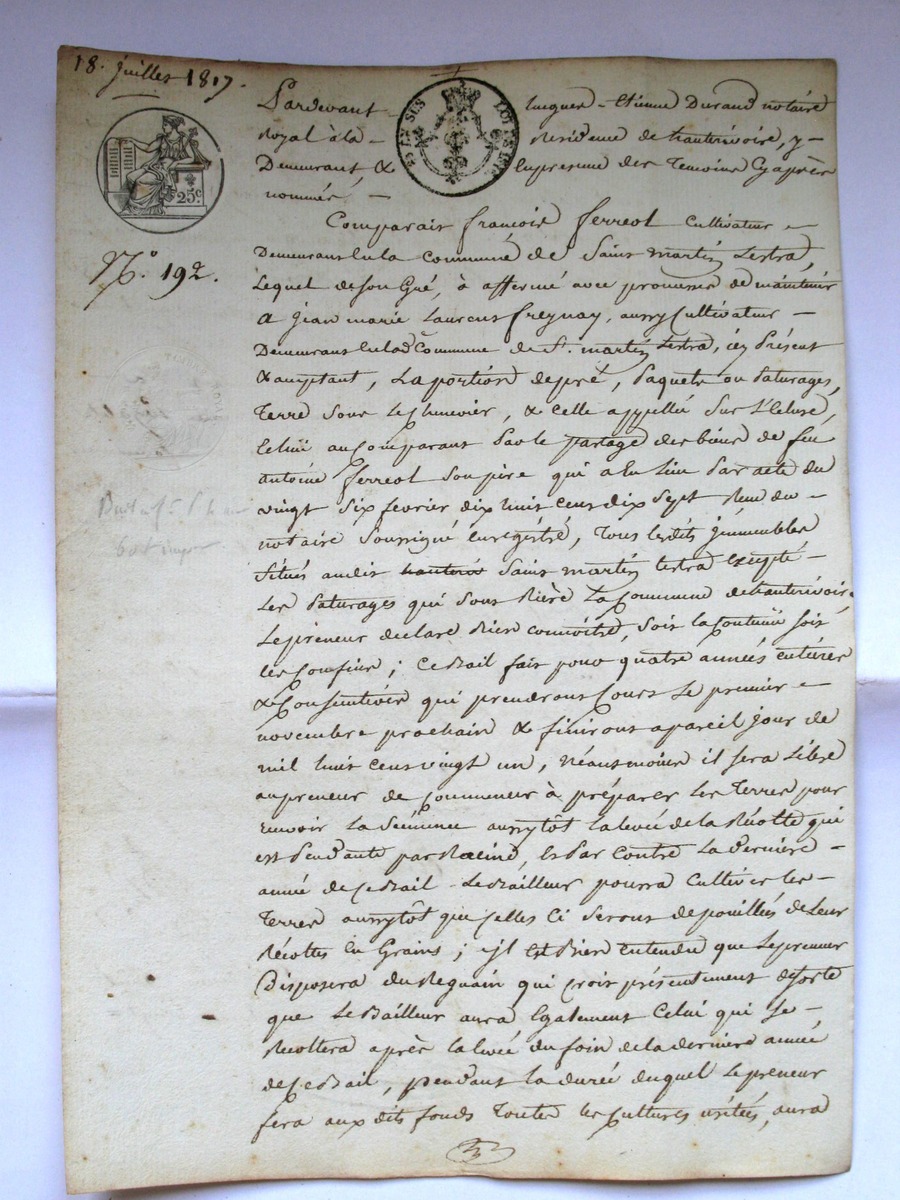 18. juilles 1817.
Pardevant lucques - Etienne Durand notaire
Royal à la - Residence de hauterivoire, y -
Demeurant & En presence des Temoins Cyaprès
nommés, -
25c
Comparais françois ferreol Cultivateur -
N.° 192.
Demeurans En la Commune de Sains martin Lestra,
Lequel de son Gré, à affermé avec promesse de maintenir
A jean marie Laurens freynay, aussy Cultivateur -
Demeurans En lad. Commune de St. martin Lestra, icy Présent
& acceptant, La portion de pré, Paquets ou Paturages,
Terre sous Le Chenevier, & Celle appellée Sur L'Ecluse,
Echüi au Comparant Par le partage des biens de feu
antoine ferreol Son père qui a Eu lieu Par acte du
vingt Six fevrier dix huis cens dix Sept Reçu du -
notaire Soussigné Enregistré, Tous lesdits jmmeubles
Situés audit hauteriv Sains martin Lestra Excepté -
Les Paturages qui Sont Rière La Commune de hauterivoire
Le preneur declare Bien connoître, Soit la Contenüe Soit
les Confins; Ce Bail fait pour quatre années entières
& Consécutives qui prendrons Cours Le premier -
novembre prochain & finirons a pareil jour de
mil huis cens vingt un, Néansmoins il sera Libre
au preneur de Commencer à préparer Les Terres pour
recevoir La Sémence aussytôt la levée de la Récolte qui
est Pendante par Racine, Et Par Contre La Derniere -
année de Ce Bail Le Bailleur pourra Cultiver les -
Terres aussytôt que jcelles Ci Serons depouillées de Leur
Récoltes En Grains; jl est Bien Entendu que Le preneur
Disposera du Reguain qui Croit présentement de sorte
que Le Bailleur aura Egalement Celui qui Se -
Recoltera après la levée du foin de la derniere année
de Ce Bail, pendant la durée duquel Le preneur
fera aux dits fonds Toutes les Cultures usitées, aura